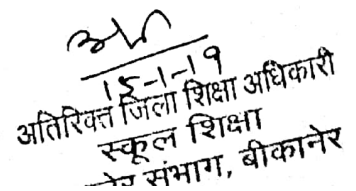 15-1-19
अतिरिक्त जिला शिक्षा अधिकारी
स्कूल शिक्षा
संभाग, बीकानेर